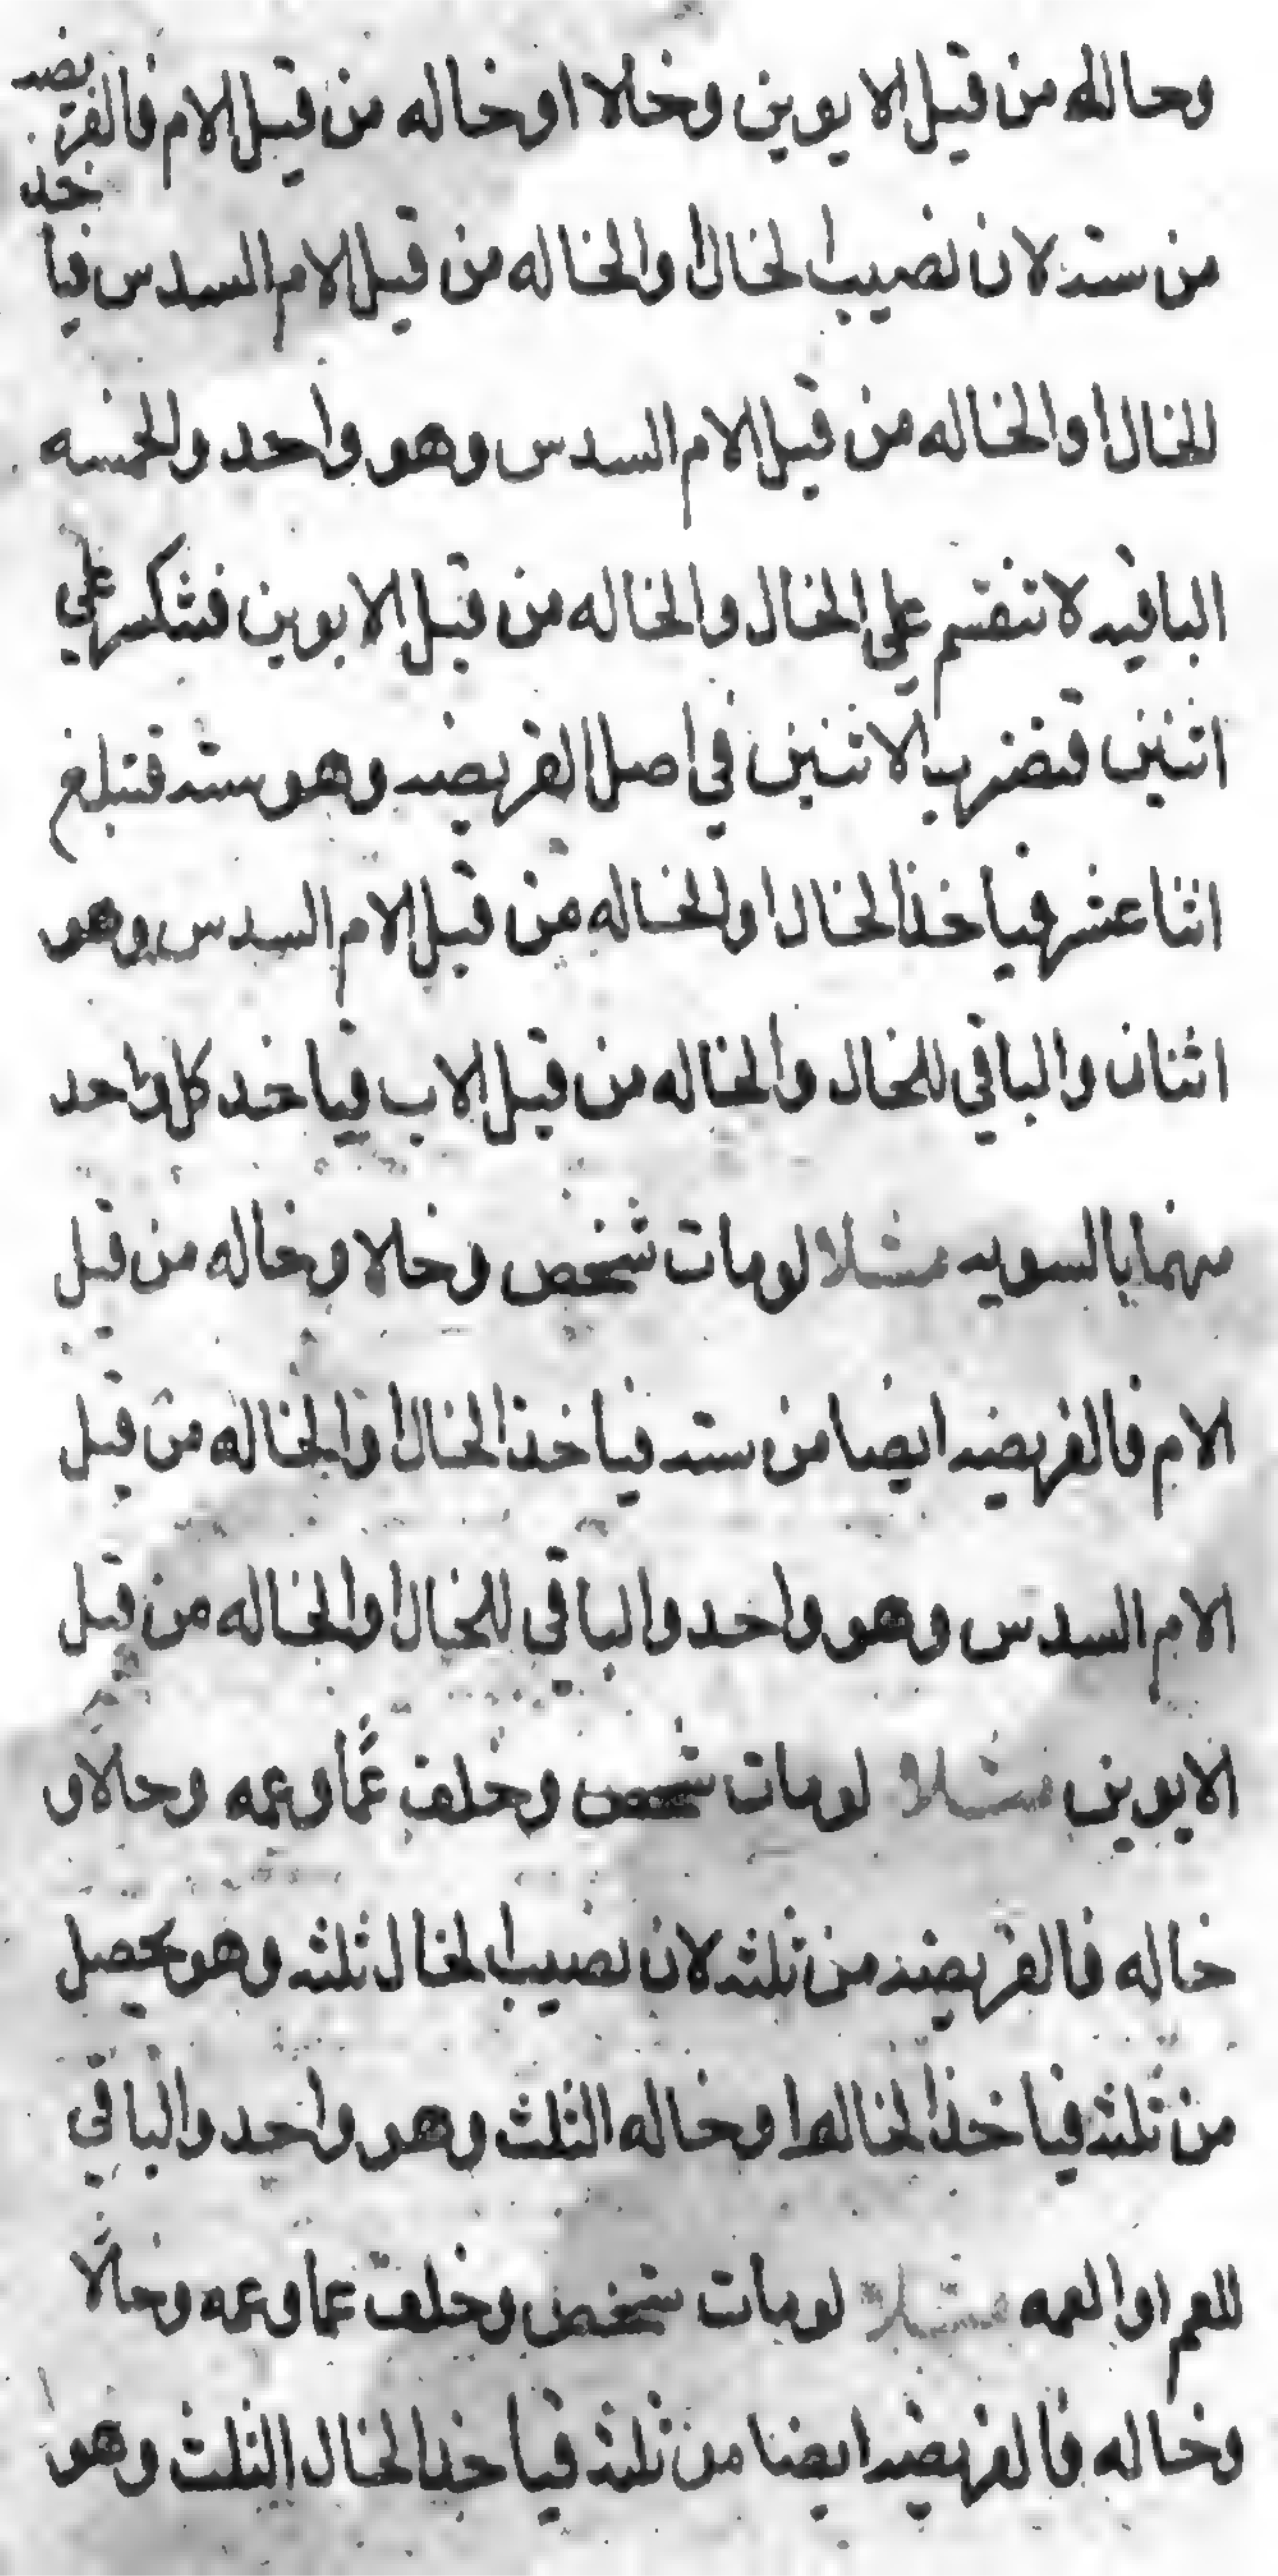 وخاله من قبل الابوين وخالا او خاله من قبل الام فالفريضه
من سته لان نصيب الخال او الخاله من قبل الام السدس فياخد
للخال او الخاله من قبل الام السدس وهو واحد والخمسه
الباقيه لا تنقسم على الخال والخاله من قبل الابوين فتنكسر على
اثنين فتضرب الاثنين في اصل الفريضه وهو سته فتبلغ
اثنا عشر فياخذ الخال او الخاله من قبل الام السدس وهو
اثنان والباقي للخال والخاله من قبل الاب فياخد كل واحد
منهما بالسويه مثلا لو مات شخص وخالا وخاله من قبل
الام فالفريضه ايضا من سته فياخذ الخال او الخاله من قبل
الام السدس وهو واحد والباقي للخال او الخاله من قبل
الابوين مثلا لو مات شخص وخلف عمًا وعمه وخالا و
خاله فالفريضه من ثلثه لان نصيب الخال ثلثه وهو يحصل
من ثلثه فياخذ الخاله او خاله الثلث وهو واحد والباقي
للعم او العمه مثلا لو مات شخص وخلف عما وعمه وخالًا
وخاله فالفريضه ايضا من ثلثه فياخذ الخال الثلث وهو